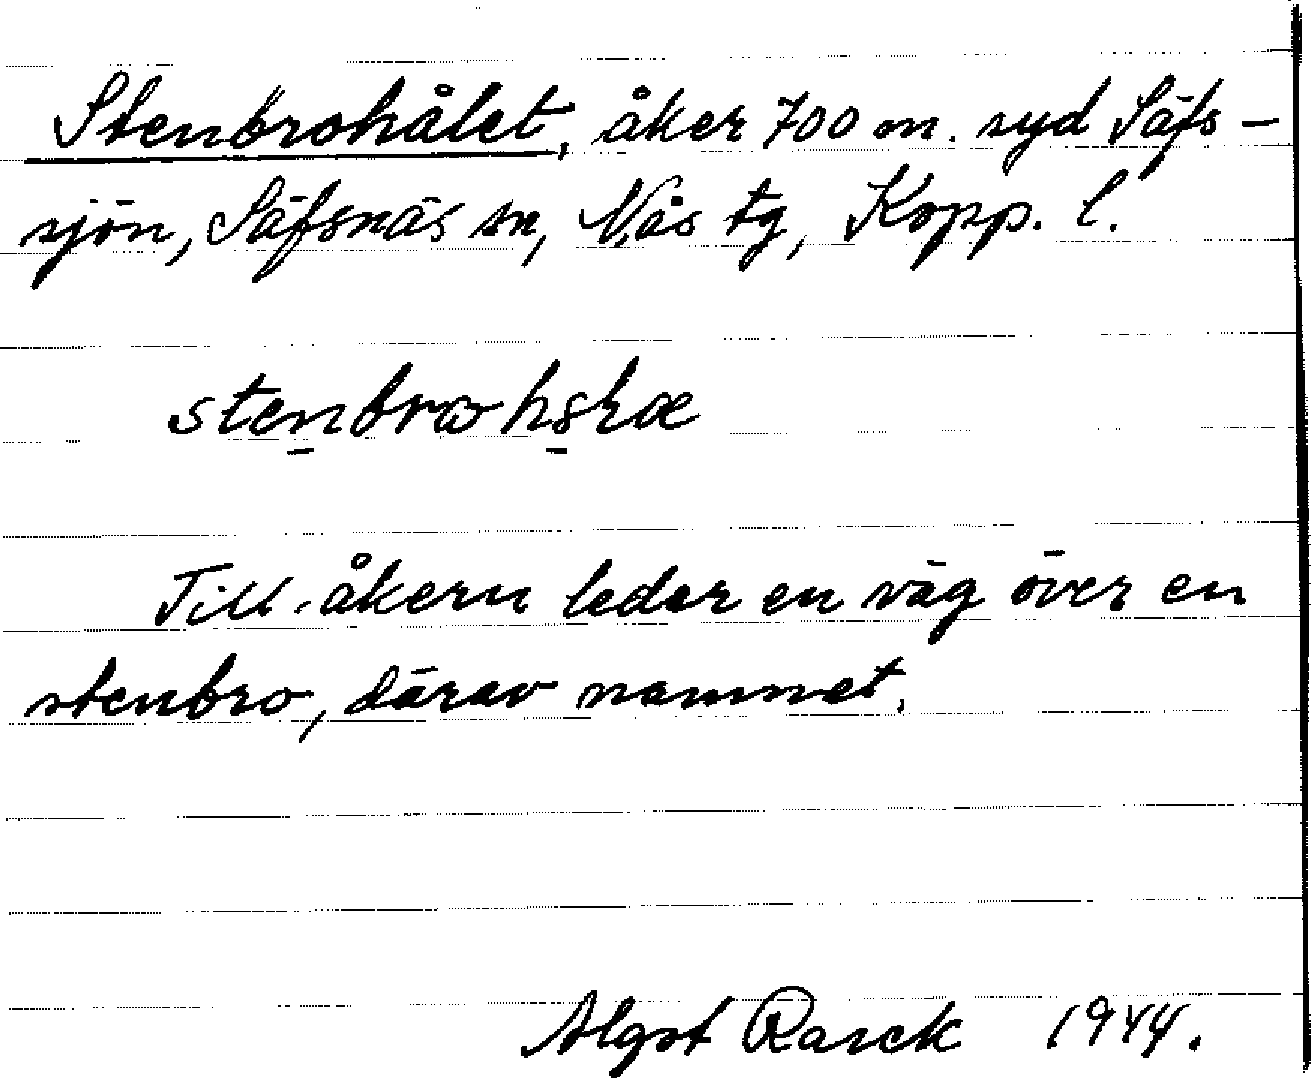 Stenbrohålet, åker 700 m. syd Säfs-
sjön, Säfsnäs sn, Nås tg, Kopp. l.
Till åkern leder en väg över en
stenbro, därav namnet.
Algot Rasck 1944.